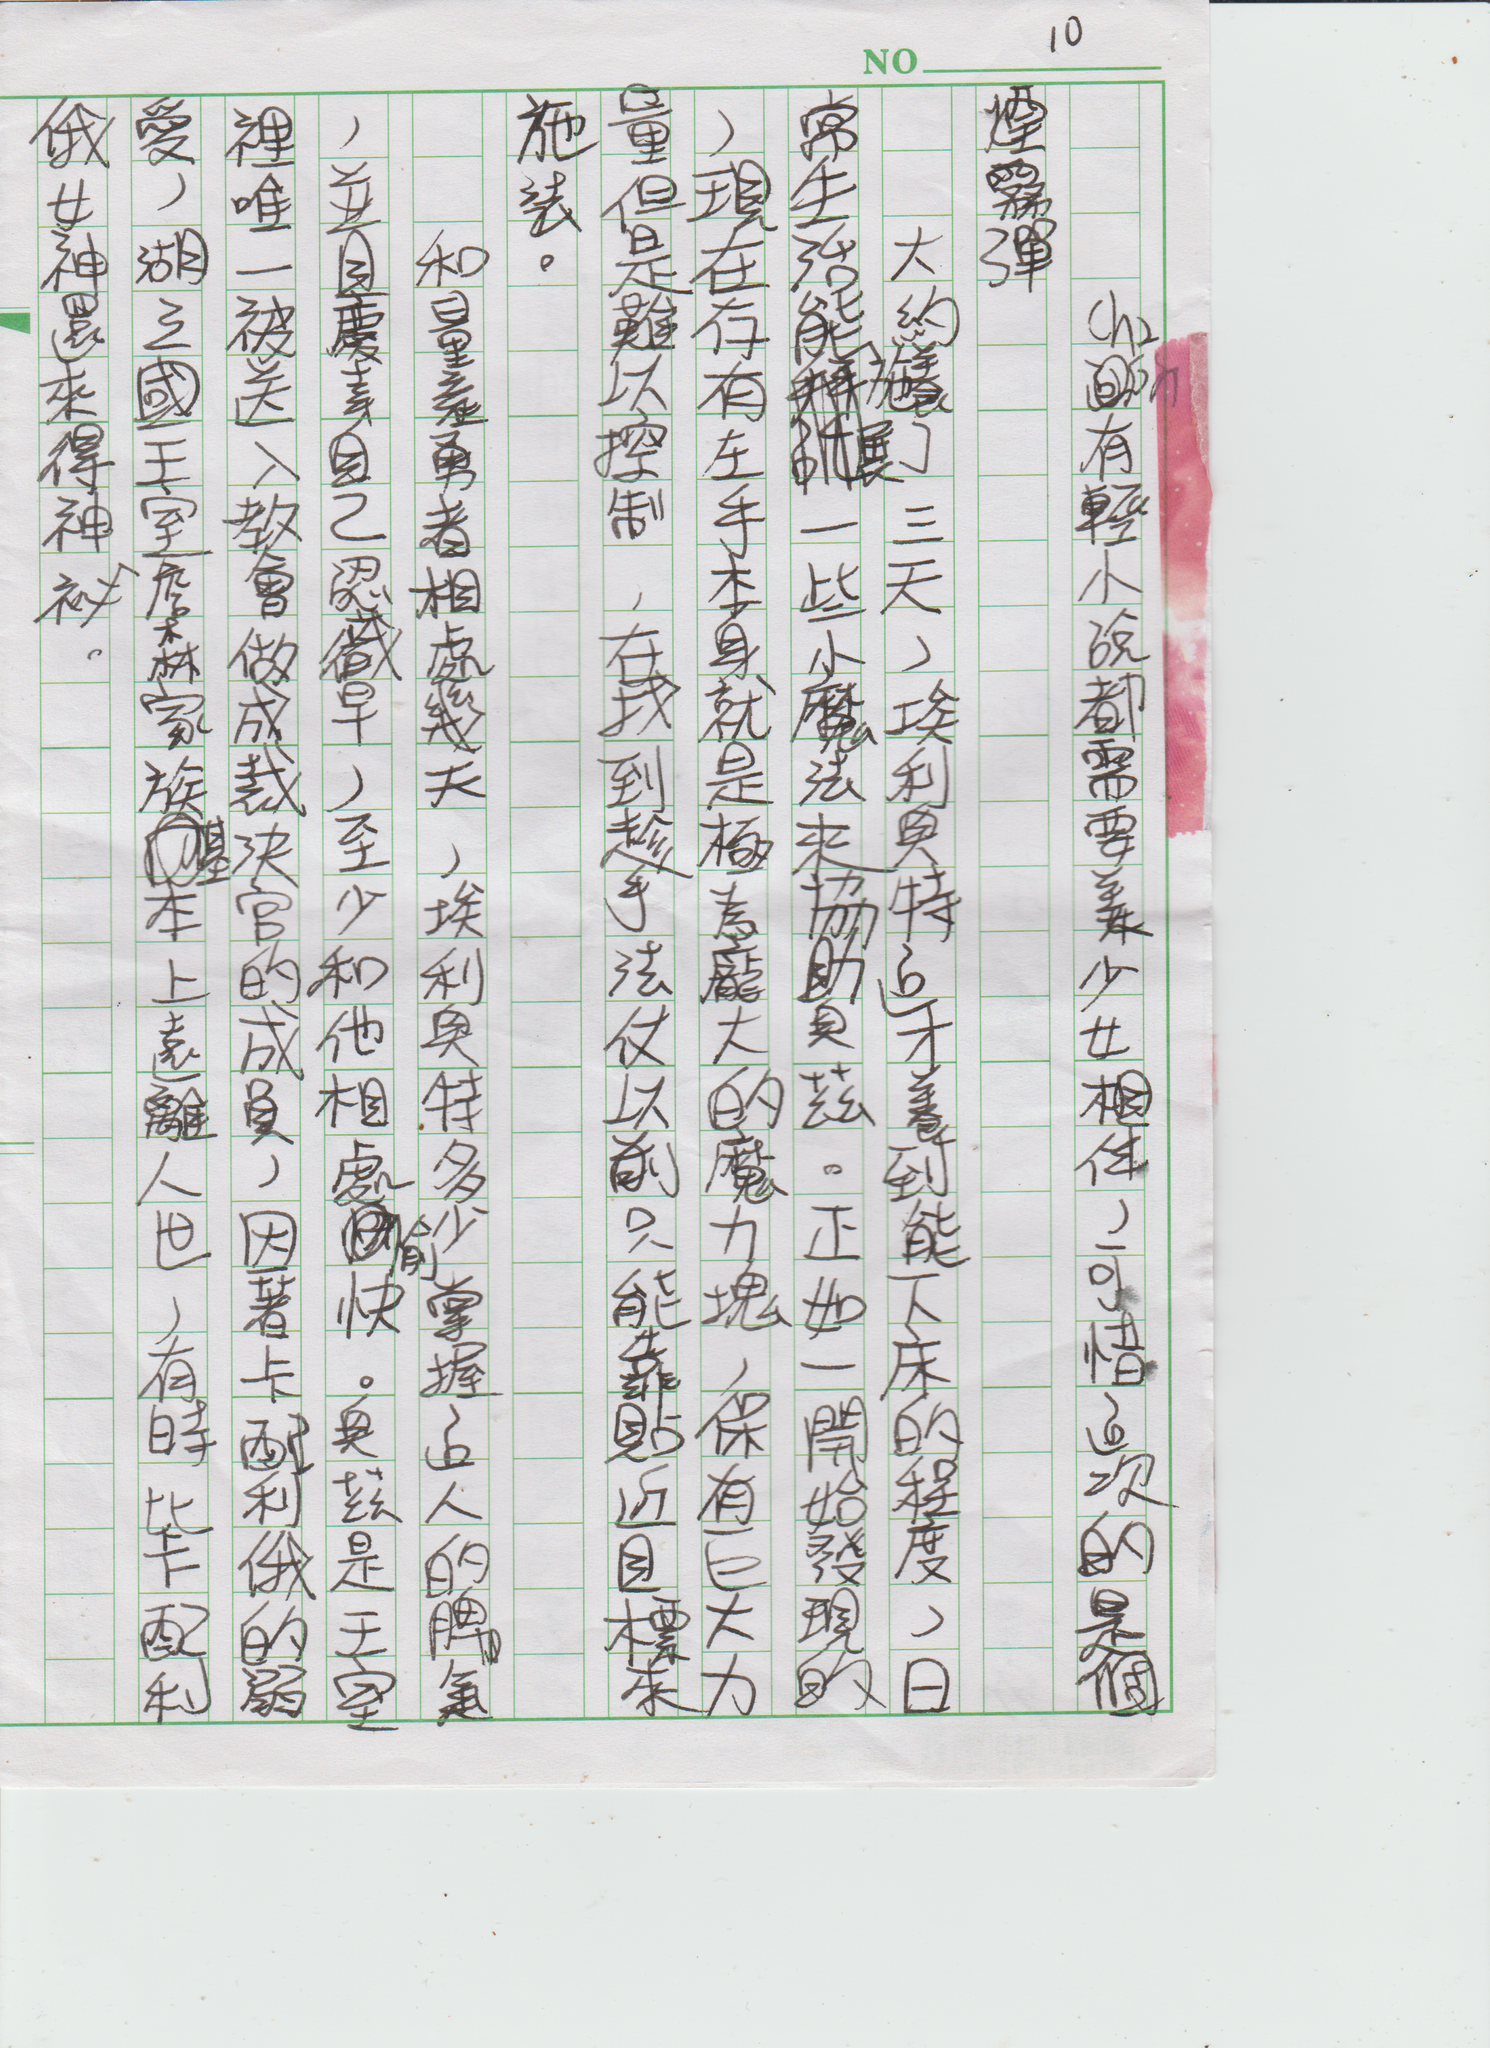 10
NO
有輕小說都需要美少女相伴，可惜這次的是個
煙霧彈
大約養了三天，埃利奧特這才養到能下床的程度，日
常生活能施展一些小魔法來協助奧茲。正如一開始發現的
，現在存有左手本身就是極為龐大的魔力塊，保有巨大力
量但是難以控制，在找到趁手法仗以前只能靠貼近目標來
施法。
和量產勇者相處幾天，埃利奧特多少掌握這人的脾氣
，並且慶幸自己認識早，至少和他相處愉快。奧茲是王室
裡唯一被送入教會做成裁決官的成員，因著卡配利俄的寵
愛，湖之國王室詹森家族基本上遠離人世，有時比卡配利
俄女神還來得神祕。